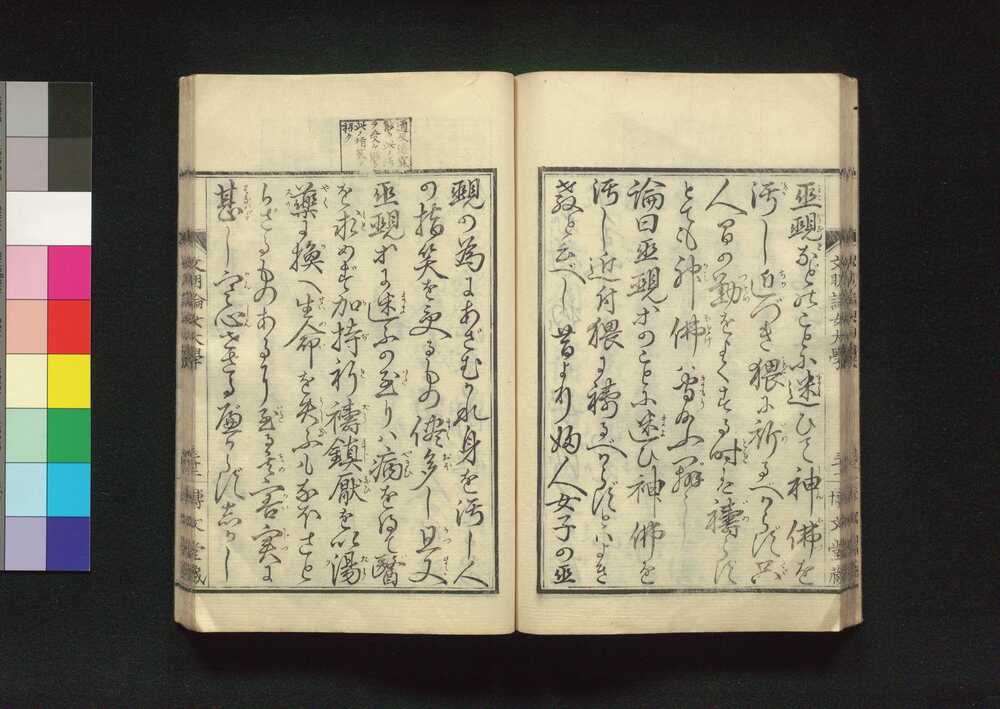 巫覡などのことに迷ひて神佛を
汚し近づき猥に祈るべからず只
人間の勤をよくする時は禱らず
とても神佛ハ守給ふ
論曰巫覡等のことに迷ひ神佛を
汚し近付猥に禱るべからずとはよき
教と云べし昔より婦人女子の巫
文明論女大學
博文堂藏
覡の為にあざむかれ身を汚し人
の指笑を受るもの儘多し且又
巫覡等に迷ふの至りハ病を得て醫
を求めず加持祈禱鎮厭を以湯
藥に換へ生命を失ふも
らざるものあるに至る其害実に
甚し寒心せざる可からず志かし
文明論女大學
博文堂藏